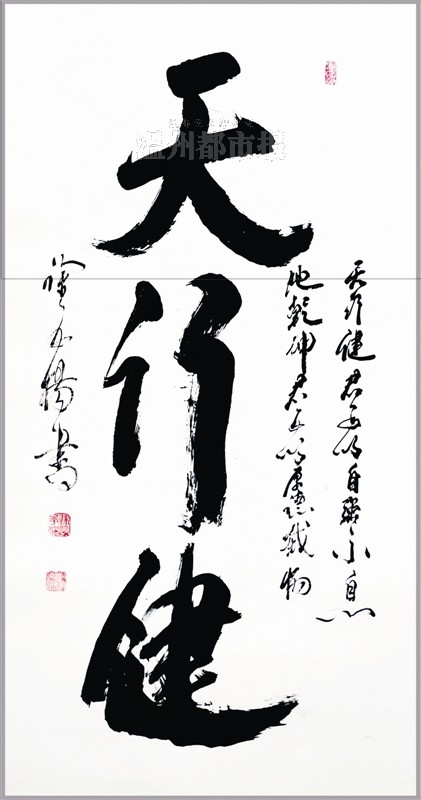 天行健君子以自强不息
地 坤君子以厚德载物
天行健
楊書
温州都市报